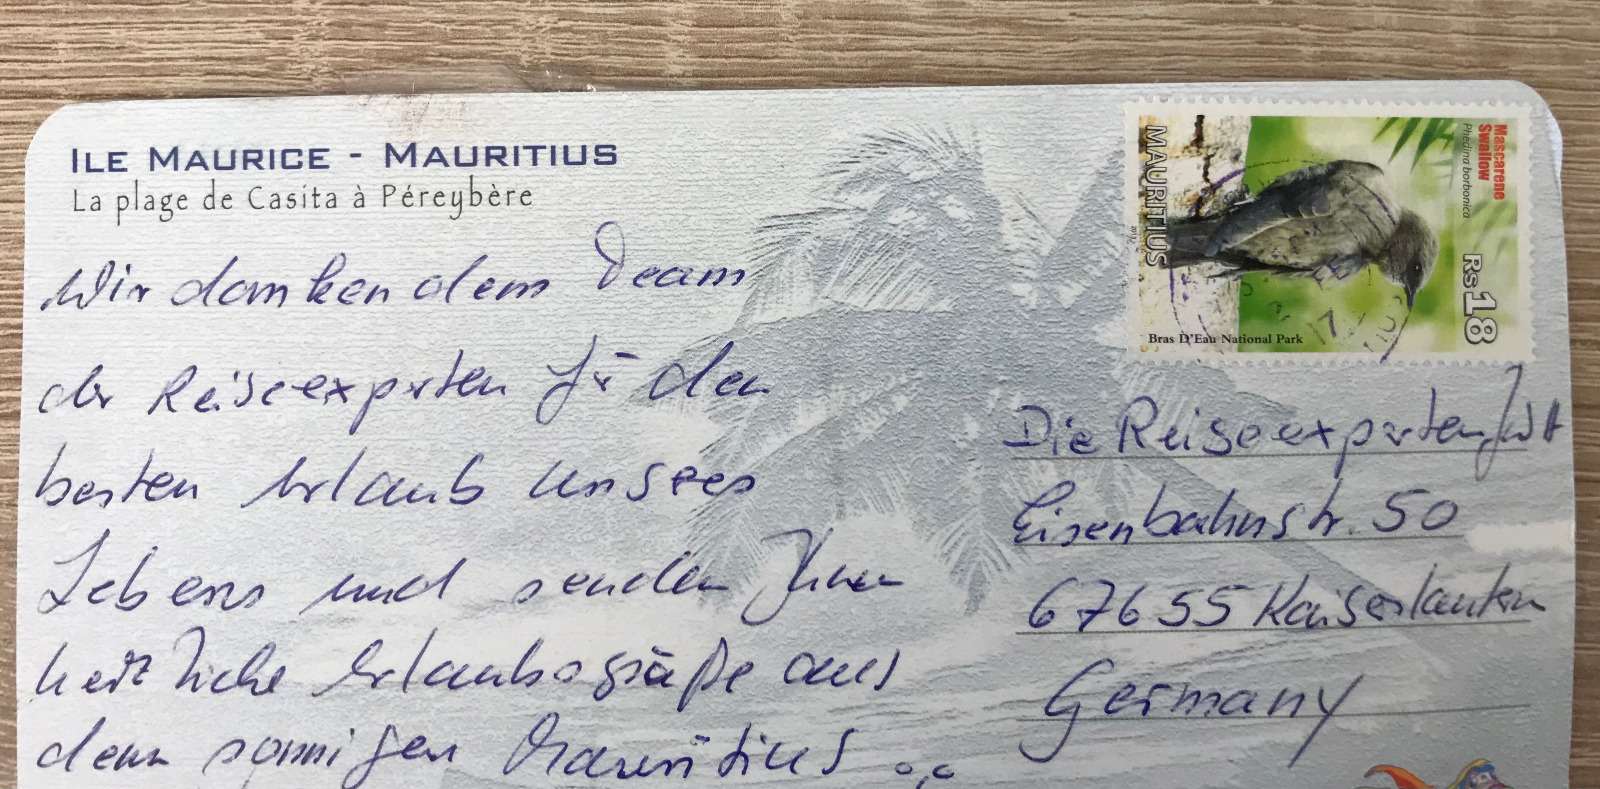 ILE MAURICE - MAURITIUS
La plage de Casita à Péreybère
Wir danken dem Team
der Reiseexperten für den
besten Urlaub unseres
Lebens und senden Ihnen
herzliche Urlaubsgrüße aus
dem sonnigen Mauritius
Mascarene
Swallow
Phedina borbonica
MAURITIUS
Rs18
Bras D'Eau National Park
17
Die Reiseexperten
Eisenbahnstr. 50
67655 Kaiserslautern
Germany